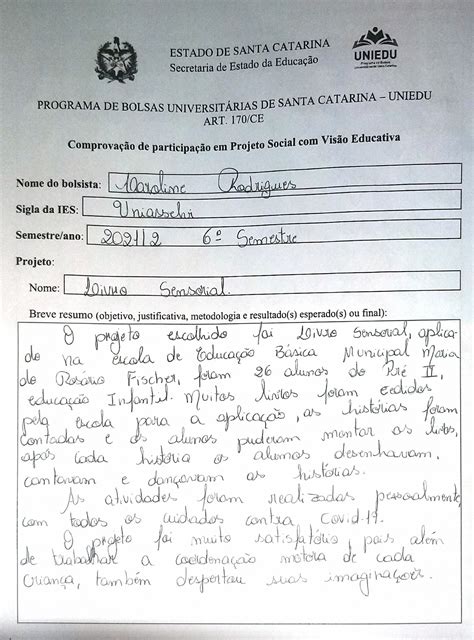 ESTADO DE SANTA CATARINA
Secretaria de Estado da Educação
UNIEDU
PROGRAMA DE BOLSAS UNIVERSITÁRIAS DE SANTA CATARINA – UNIEDU
ART. 170/CE
Comprovação de participação em Projeto Social com Visão Educativa
Nome do bolsista: Karoline Rodrigues
Sigla da IES: Uniasselvi
Semestre/ano: 2021/2 6º Semestre
Projeto:
Nome: Livro Sensorial.
Breve resumo (objetivo, justificativa, metodologia e resultado(s) esperado(s) ou final):
O projeto escolhido foi Livro Sensorial, aplica-
do na escola de Educação Básica Municipal Maria
do Rosário Fischer, foram 26 alunos do Pré II,
educação Infantil. Muitos livros foram cedidos
pela escola para a aplicação, as histórias foram
contadas e os alunos puderam montar os livros,
após cada história os alunos desenhavam,
cantavam e dançavam as histórias.
As atividades foram realizadas pessoalmente,
com todos os cuidados contra Covid-19.
O projeto foi muito satisfatório, pois além
de trabalhar a coordenação motora de cada
criança, também despertou suas imaginações.